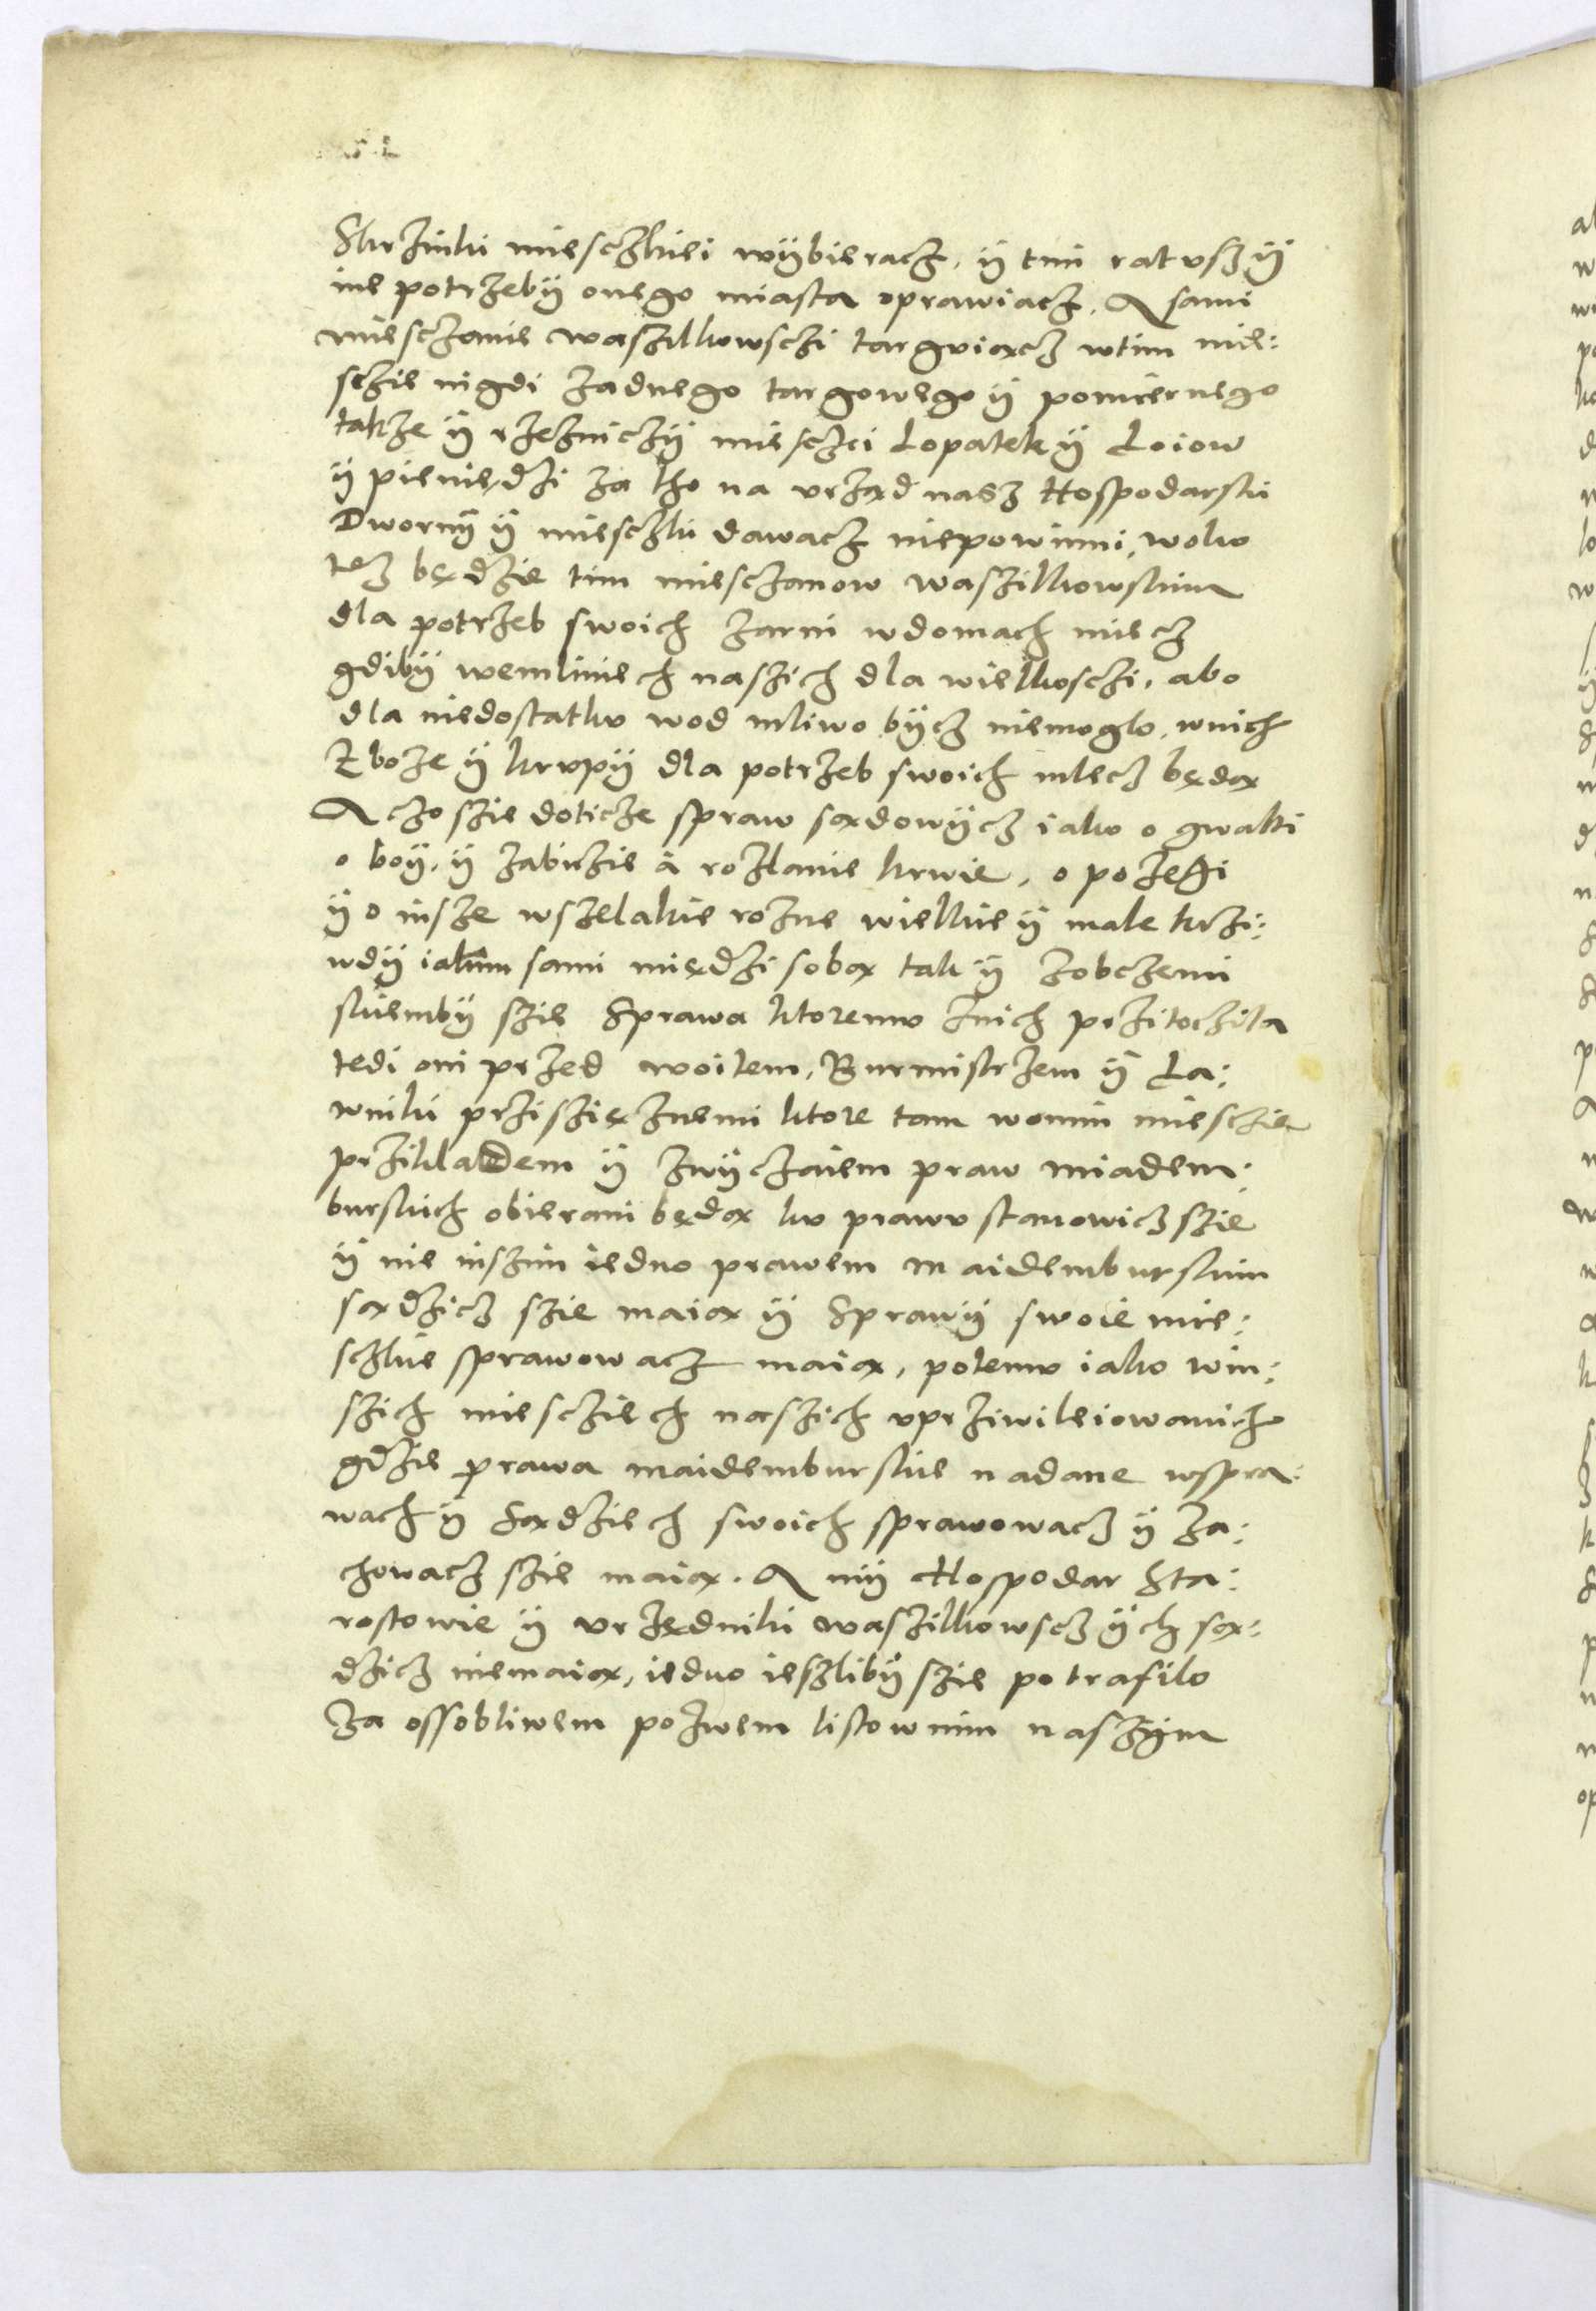 Skrzinki miesczkiei wÿbieracz, ÿ tmi ratusz ÿ
ine potrzebÿ onego miasta oprawiacz. A sami
miesczanie waszilkowsczi targuiącz wtim mie:
sczie nigdi zadnego targowego ÿ pomiernego
takze ÿ rzezniczÿ miesczci Lopatek ÿ Łoiow
ÿ pieniędzi za tho na urząd nasz Hospodarski
Dwornÿ ÿ miesczki dawacz niepowinni, wolno
tez będzie tim miesczanow waszilkowskim
dla potrzeb swoich zarni wdomach miecz
gdibÿ wemliniech naszich dla wielkosczi, abo
dla niedostatku wod mliwo bÿcz niemoglo, wnich
Zboze ÿ krupÿ dla potrzeb swoich mlecz będą
A czo szie doticze spraw sądowÿcz iako o gwalti
o boÿ, ÿ zabiczie à rozlanie krwie, o pozegi
ÿ o insze wszelakie rozne wielkie ÿ male krzi:
wdÿ iakim sami między sobą tak ÿ zobczemi
kiembÿ szie Sprawa ktoremu znich prziToczila
tedi oni przed woitem, Burmistrzem ÿ Ła:
wniki prziszięznemi ktore tam wonim miesczie
przikladem ÿ zwÿczaiem praw miadem:
burskich obierani będą ku prawu stanowicz szie
ÿ nie inszim iedno prawem maidemburskim
sądzicz szie maią ÿ Sprawÿ swoie mie:
sczkie sprawowacz maią, potemu iako win:
szich miescziech naszich uprziwileiowanich
gdzie prawa maidemburskie nadane wspra:
wach ÿ Sądziech swoich sprawowacz ÿ za:
chowacz szie maią. A mÿ Hospodar Sta:
rostowie ÿ urzędniki waszilkowsczÿ ich są:
dzicz niemaią, iedno ieszlibÿ szie potrafilo
Za ossobliwem pozwem listownim naszÿm